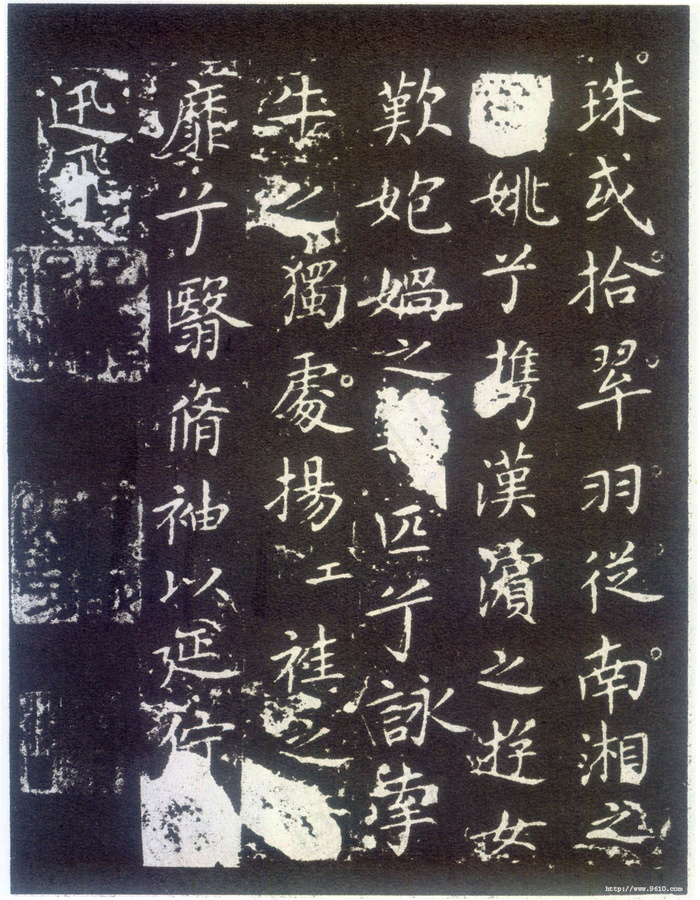 珠或拾翠羽從南湘之
姚兮携漢濱之遊女
歎㚿媧之匹兮詠牽
牛之獨處揚工袿之
靡兮翳脩袖以延佇
迅飛
http://www.9610.com